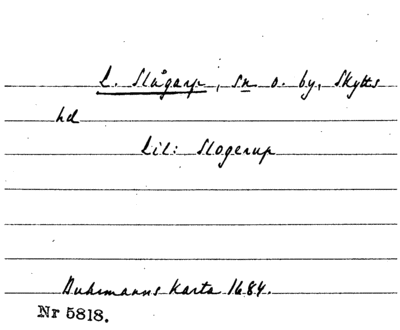 L. Slågarp, sn o. by, Skytts
hd
Lil: Slogerup
Buhrmanns Karta 1684.
Nr 5818.